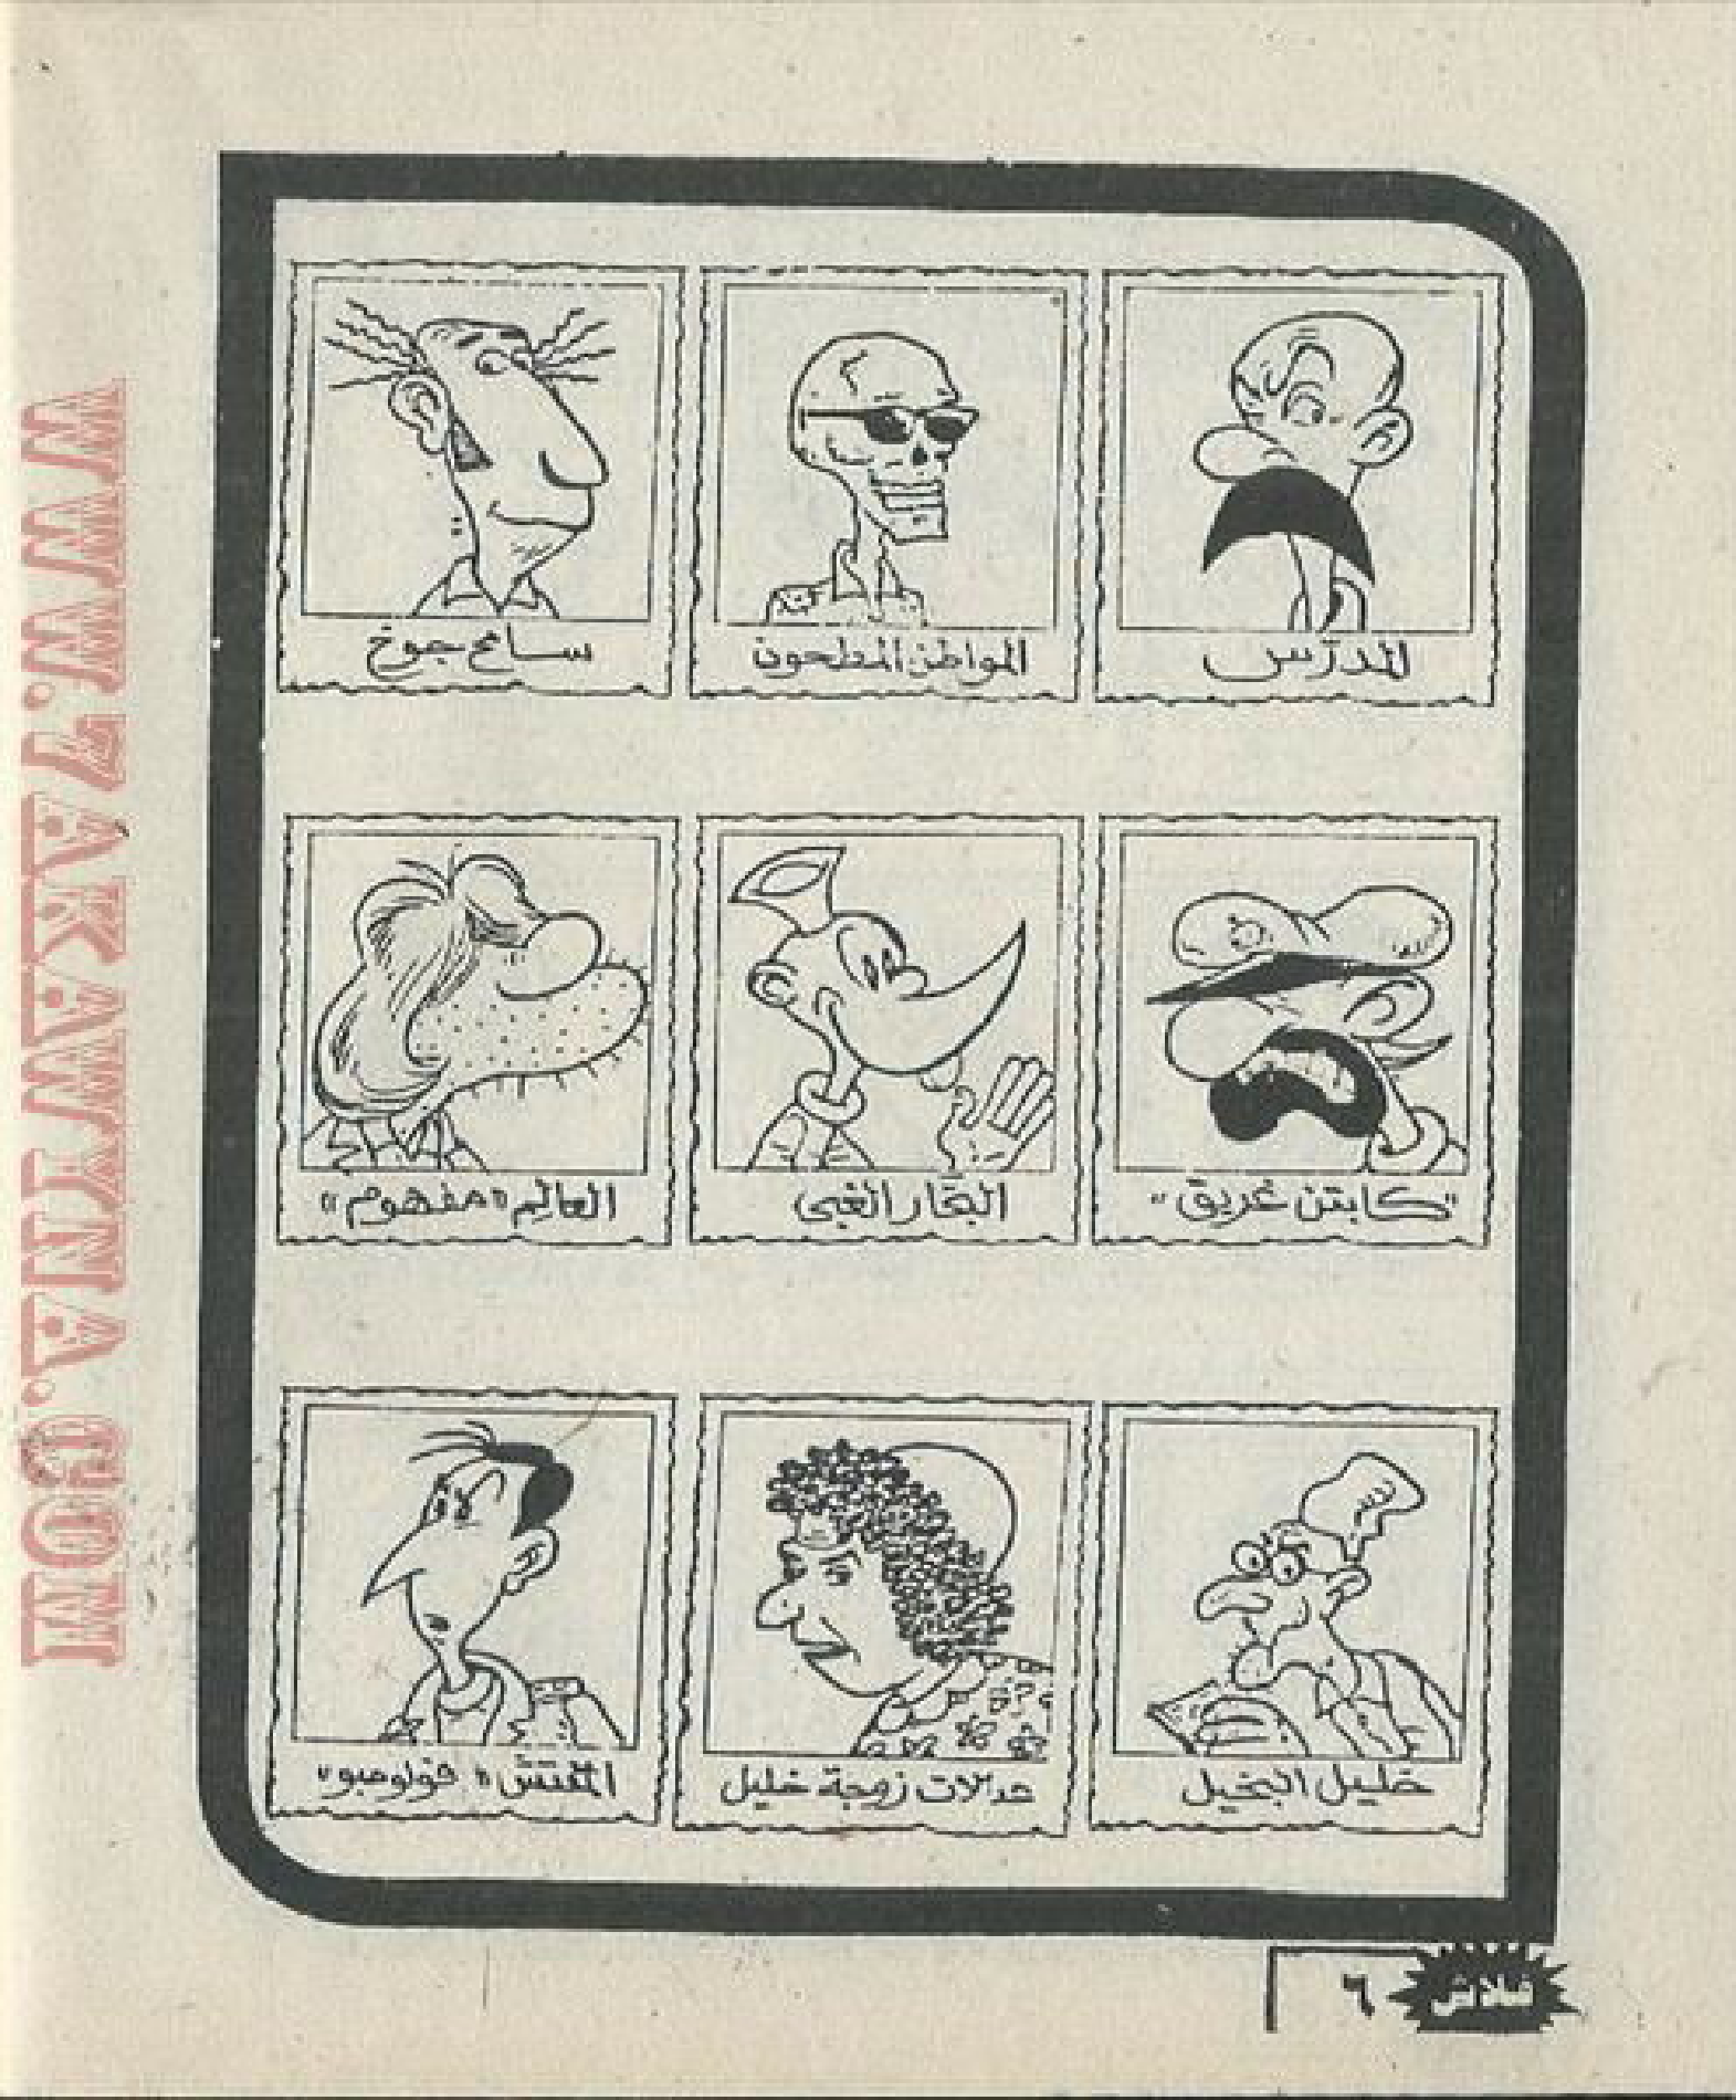 المدرس
المواطن المطحون
سامح جوخ
"كابتن غريق"
البحّار الغبى
العالِم «مفهوم»
خليل البخيل
عدلات زوجة خليل
المفتش «قولومبو»
فلاش
٦
WWW.7AKAWITNA.COM